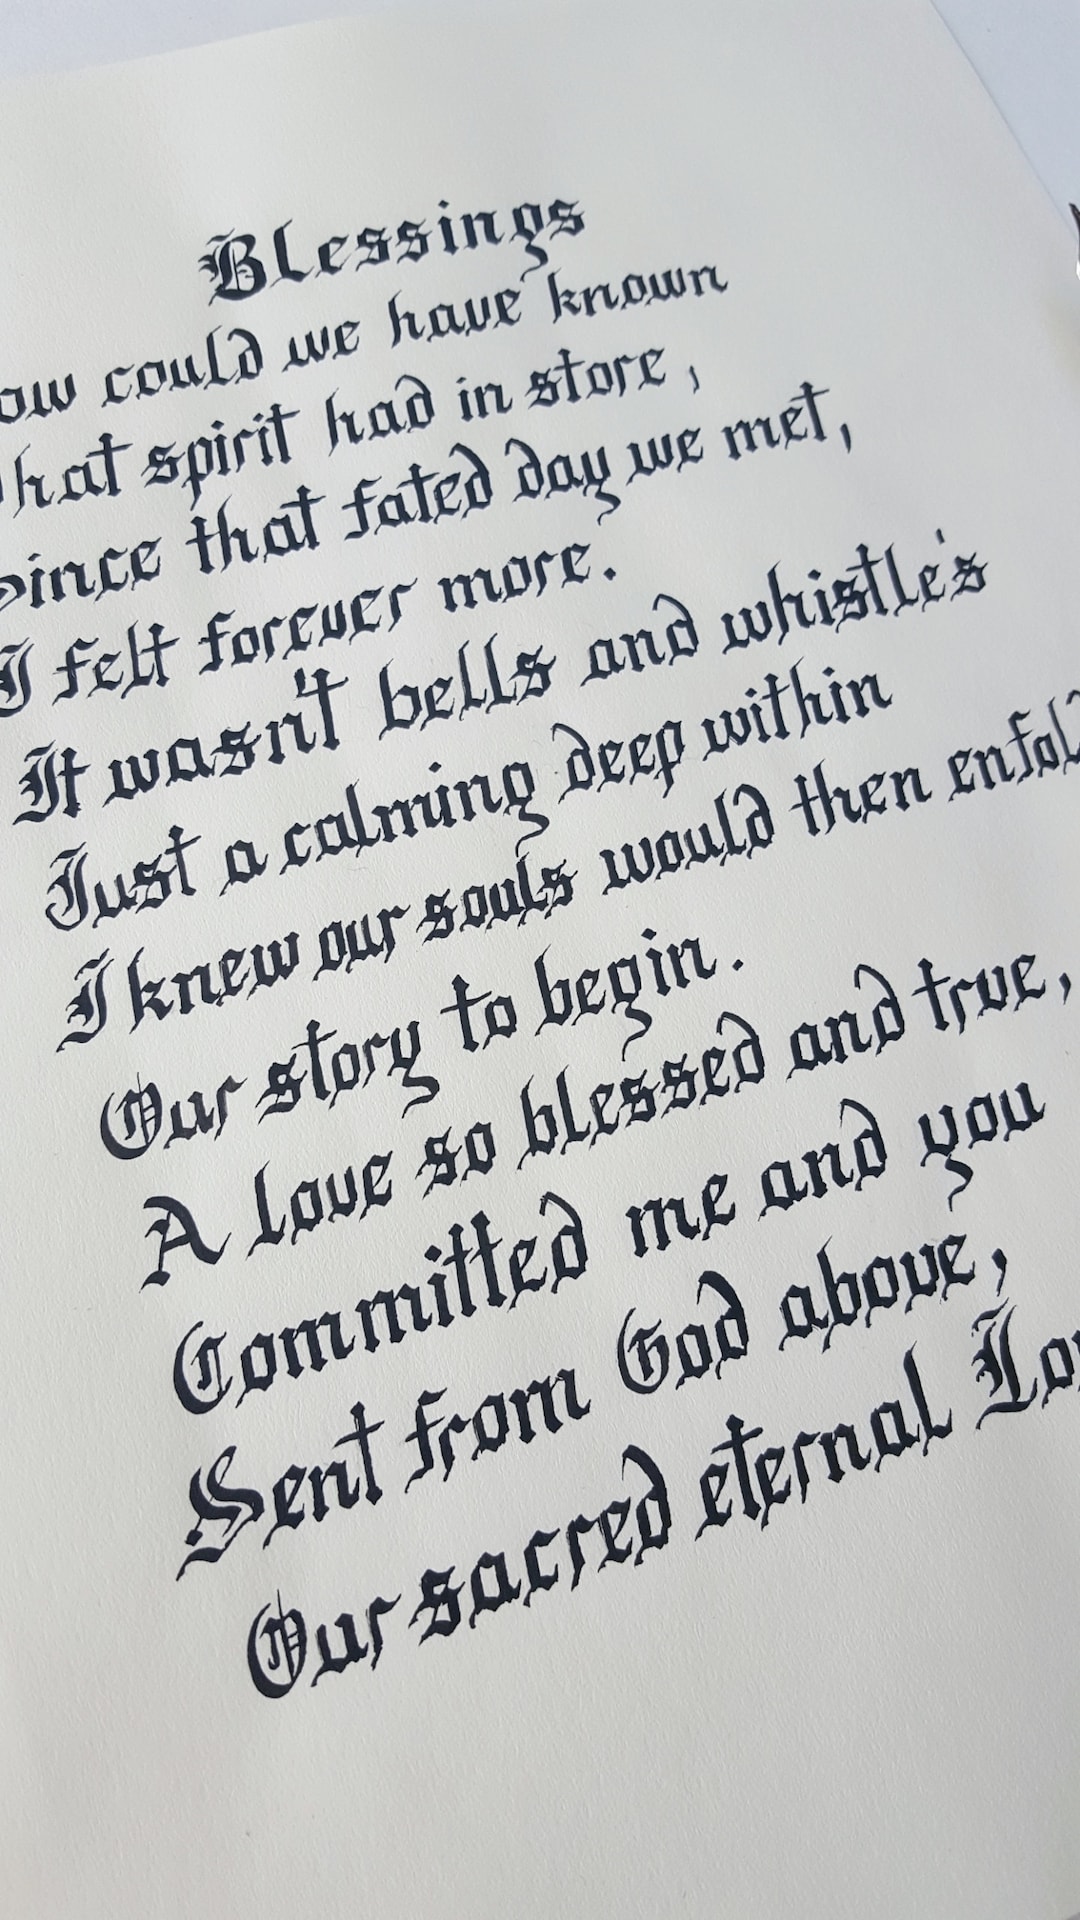 Blessings
ow could we have known
hat spirit had in store,
since that fated day we met,
I felt forever more.
It wasn't bells and whistle's
Just a calming deep within
I knew our souls would then enfol
Our story to begin.
A love so blessed and true,
Committed me and you
Sent from God above,
Our sacred eternal Lo